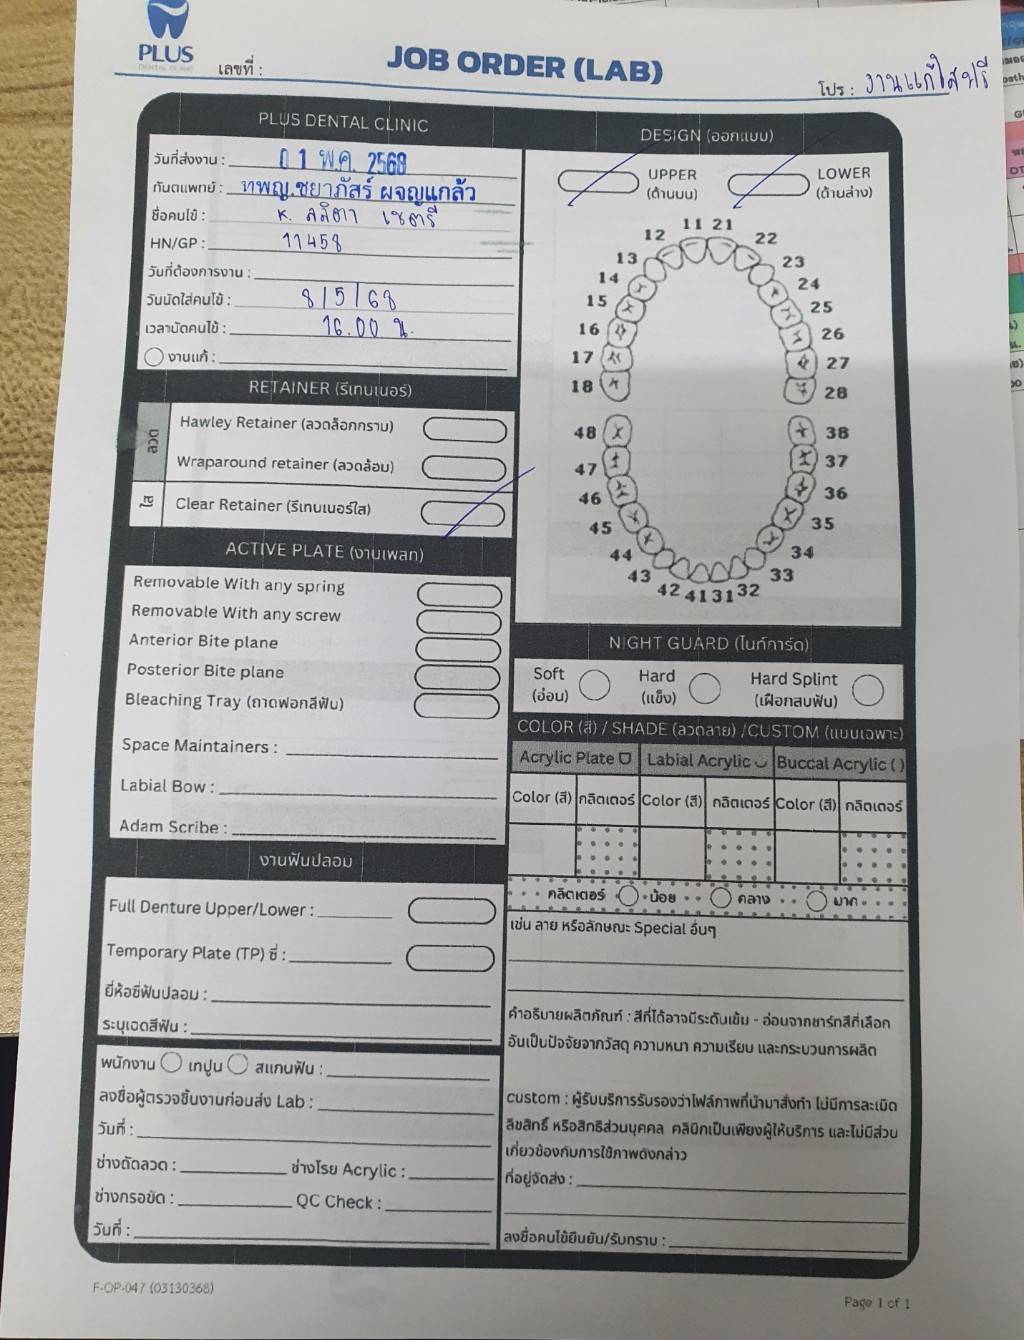 PLUS
DENTAL CLINIC
เลขที่ :
JOB ORDER (LAB)
โปร : งานแก้ใสฟรี
PLUS DENTAL CLINIC
วันที่ส่งงาน : 01 พ.ค. 2568
ทันตแพทย์ : ทพญ.ชยาภัสร์ ผจญแกล้ว
ชื่อคนไข้ : K. ลลิตา เชตรี
HN/GP : 11458
วันที่ต้องการงาน :
วันนัดใส่คนไข้ : 8/5/68
เวลานัดคนไข้ : 16.00 น.
งานแก้ :
RETAINER (รีเทนเนอร์)
ลวด
Hawley Retainer (ลวดล็อกกราม)
Wraparound retainer (ลวดล้อม)
ใส
Clear Retainer (รีเทนเนอร์ใส)
ACTIVE PLATE (งานเพลท)
Removable With any spring
Removable With any screw
Anterior Bite plane
Posterior Bite plane
Bleaching Tray (ถาดฟอกสีฟัน)
Space Maintainers :
Labial Bow :
Adam Scribe :
งานฟันปลอม
Full Denture Upper/Lower :
Temporary Plate (TP) ซี่ :
ยี่ห้อซี่ฟันปลอม :
ระบุเฉดสีฟัน :
พนักงาน เทปูน สแกนฟัน :
ลงชื่อผู้ตรวจชิ้นงานก่อนส่ง Lab :
วันที่ :
ช่างดัดลวด : ช่างโรย Acrylic :
ช่างกรอขัด : QC Check :
วันที่ :
DESIGN (ออกแบบ)
UPPER
(ด้านบน)
LOWER
(ด้านล่าง)
11 21
12 22
13 23
14 24
15 25
16 26
17 27
18 28
48 38
47 37
46 36
45 35
44 34
43 33
42 41 31 32
NIGHT GUARD (ไนท์การ์ด)
Soft
(อ่อน)
Hard
(แข็ง)
Hard Splint
(เฝือกสบฟัน)
COLOR (สี) / SHADE (ลวดลาย) /CUSTOM (แบบเฉพาะ)
Acrylic Plate Labial Acrylic Buccal Acrylic ( )
Color (สี) กลิตเตอร์ Color (สี) กลิตเตอร์ Color (สี) กลิตเตอร์
กลิตเตอร์ น้อย กลาง มาก
เช่น ลาย หรือลักษณะ Special อื่นๆ
คำอธิบายผลิตภัณฑ์ : สีที่ได้อาจมีระดับเข้ม - อ่อนจากชาร์ทสีที่เลือก
อันเป็นปัจจัยจากวัสดุ ความหนา ความเรียบ และกระบวนการผลิต
custom : ผู้รับบริการรับรองว่าไฟล์ภาพที่นำมาสั่งทำ ไม่มีการละเมิด
ลิขสิทธิ์ หรือสิทธิส่วนบุคคล คลินิกเป็นเพียงผู้ให้บริการ และไม่มีส่วน
เกี่ยวข้องกับการใช้ภาพดังกล่าว
ที่อยู่จัดส่ง :
ลงชื่อคนไข้ยืนยัน/รับทราบ :
F-OP-047 (03130368)
Page 1 of 1